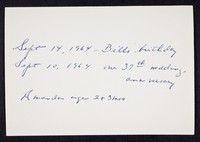 Sept 14, 1964 - Bill's birthday
Sept 10, 1964 our 39th wedding
anniversary
Amanda age 2 + 3 mos